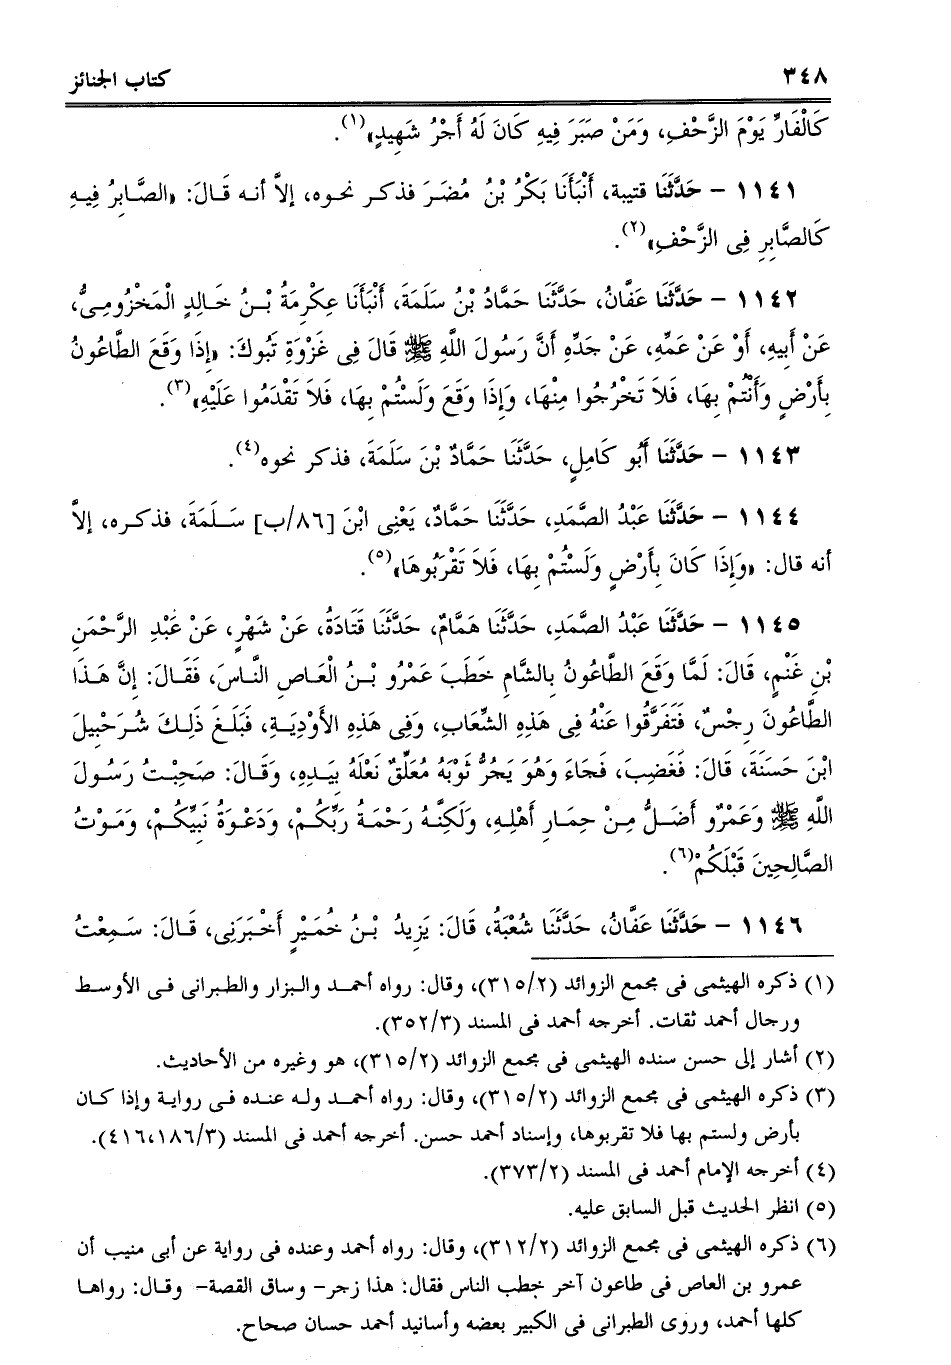 ٣٤٨ كتاب الجنائز
كَالْفَارِّ يَوْمَ الزَّحْفِ، وَمَنْ صَبَرَ فِيهِ كَانَ لَهُ أَجْرُ شَهِيدٍ»(١).
١١٤١ – حَدَّثَنَا قتيبة، أَنْبَأَنَا بَكْرُ بْنُ مُضَرَ فذكر نحوه، إلاَّ أنه قَالَ: «الصَّابِرُ فِيهِ
كَالصَّابِرِ فِى الزَّحْفِ»(٢).
١١٤٢ – حَدَّثَنَا عَفَّانُ، حَدَّثَنَا حَمَّادُ بْنُ سَلَمَةَ، أَنْبَأَنَا عِكْرِمَةُ بْنُ خَالِدٍ الْمَخْزُومِىُّ،
عَنْ أَبِيهِ، أَوْ عَنْ عَمِّهِ، عَنْ جَدِّهِ أَنَّ رَسُولَ اللَّهِ ﷺ قَالَ فِى غَزْوَةِ تَبُوكَ: «إِذَا وَقَعَ الطَّاعُونُ
بِأَرْضٍ وَأَنْتُمْ بِهَا، فَلاَ تَخْرُجُوا مِنْهَا، وَإِذَا وَقَعَ وَلَسْتُمْ بِهَا، فَلاَ تَقْدَمُوا عَلَيْهِ»(٣).
١١٤٣ – حَدَّثَنَا أَبُو كَامِلٍ، حَدَّثَنَا حَمَّادُ بْنَ سَلَمَةَ، فذكر نحوه(٤).
١١٤٤ – حَدَّثَنَا عَبْدُ الصَّمَدِ، حَدَّثَنَا حَمَّادٌ، يَعْنِى ابْنَ [٨٦/ب] سَلَمَةَ، فذكره، إلاَّ
أنه قال: «وَإِذَا كَانَ بِأَرْضٍ وَلَسْتُمْ بِهَا، فَلاَ تَقْرَبُوهَا»(٥).
١١٤٥ – حَدَّثَنَا عَبْدُ الصَّمَدِ، حَدَّثَنَا هَمَّامٌ، حَدَّثَنَا قَتَادَةُ، عَنْ شَهْرٍ، عَنْ عَبْدِ الرَّحْمَنِ
بْنِ غَنْمٍ، قَالَ: لَمَّا وَقَعَ الطَّاعُونُ بِالشَّامِ خَطَبَ عَمْرُو بْنُ الْعَاصِ النَّاسَ، فَقَالَ: إِنَّ هَذَا
الطَّاعُونَ رِجْسٌ، فَتَفَرَّقُوا عَنْهُ فِى هَذِهِ الشِّعَابِ، وَفِى هَذِهِ الأَوْدِيَةِ، فَبَلَغَ ذَلِكَ شُرَحْبِيلَ
ابْنَ حَسَنَةَ، قَالَ: فَغَضِبَ، فَجَاءَ وَهُوَ يَجُرُّ ثَوْبَهُ مُعَلِّقٌ نَعْلَهُ بِيَدِهِ، وَقَالَ: صَحِبْتُ رَسُولَ
اللَّهِ ﷺ وَعَمْرٌو أَضَلُّ مِنْ حِمَارِ أَهْلِهِ، وَلَكِنَّهُ رَحْمَةُ رَبِّكُمْ، وَدَعْوَةُ نَبِيِّكُمْ، وَمَوْتُ
الصَّالِحِينَ قَبْلَكُمْ(٦).
١١٤٦ – حَدَّثَنَا عَفَّانُ، حَدَّثَنَا شُعْبَةُ، قَالَ: يَزِيدُ بْنُ خُمَيْرٍ أَخْبَرَنِى، قَالَ: سَمِعْتُ
(١) ذكره الهيثمى فى مجمع الزوائد (٣١٥/٢)، وقال: رواه أحمد والبزار والطبرانى فى الأوسط
ورجال أحمد ثقات. أخرجه أحمد فى المسند (٣٥٢/٣).
(٢) أشار إلى حسن سنده الهيثمى فى مجمع الزوائد (٣١٥/٢)، هو وغيره من الأحاديث.
(٣) ذكره الهيثمى فى مجمع الزوائد (٣١٥/٢)، وقال: رواه أحمد وله عنده فى رواية وإذا كان
بأرض ولستم بها فلا تقربوها، وإسناد أحمد حسن. أخرجه أحمد فى المسند (٤١٦،١٨٦/٣).
(٤) أخرجه الإمام أحمد فى المسند (٣٧٣/٢).
(٥) انظر الحديث قبل السابق عليه.
(٦) ذكره الهيثمى فى مجمع الزوائد (٣١٢/٢)، وقال: رواه أحمد وعنده فى رواية عن أبى منيب أن
عمرو بن العاص فى طاعون آخر خطب الناس فقال: هذا زجر– وساق القصة– وقال: رواها
كلها أحمد، وروى الطبرانى فى الكبير بعضه وأسانيد أحمد حسان صحاح.